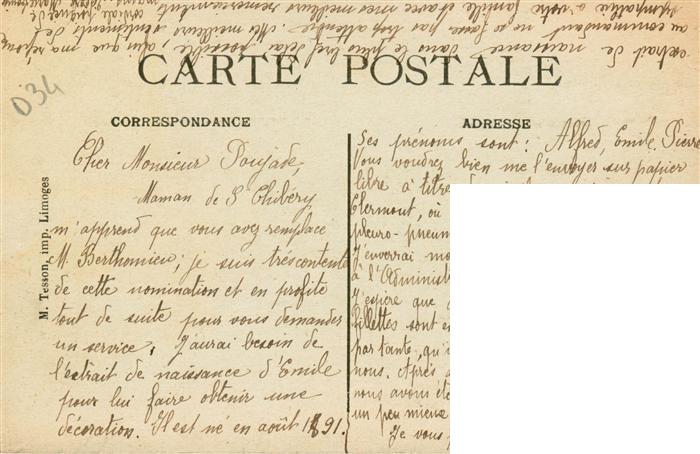 extrait de naissance dans le plus bref délai possible, afin que ma réponse
au commandant ne se fasse pas trop attendre. Mes meilleurs sentiments de
sympathie à votre famille et avec mes meilleurs remerciements
CARTE POSTALE
D34
CORRESPONDANCE
Cher Monsieur Poujade,
Maman de S Thibéry
m'apprend que vous avez remplacé
M. Berthomieu; je suis très contente
de cette nomination et en profite
tout de suite pour vous demander
un service. J'aurai besoin de
l'extrait de naissance d'Emile
pour lui faire obtenir une
décoration. Il est né en août 1891.
M. Tesson, imp. Limoges
ADRESSE
Ses prénoms sont: Alfred, Emile, Pierre
Vous voudrez bien me l'envoyer sur papier
libre à titre
Clermont, où
pleuro-pneum
J'enverrai mo
à l'Administ
J'espère que
Billettes sont e
par tante, qu'i
nous. Après
nous avons été
un peu mieux
Je vous